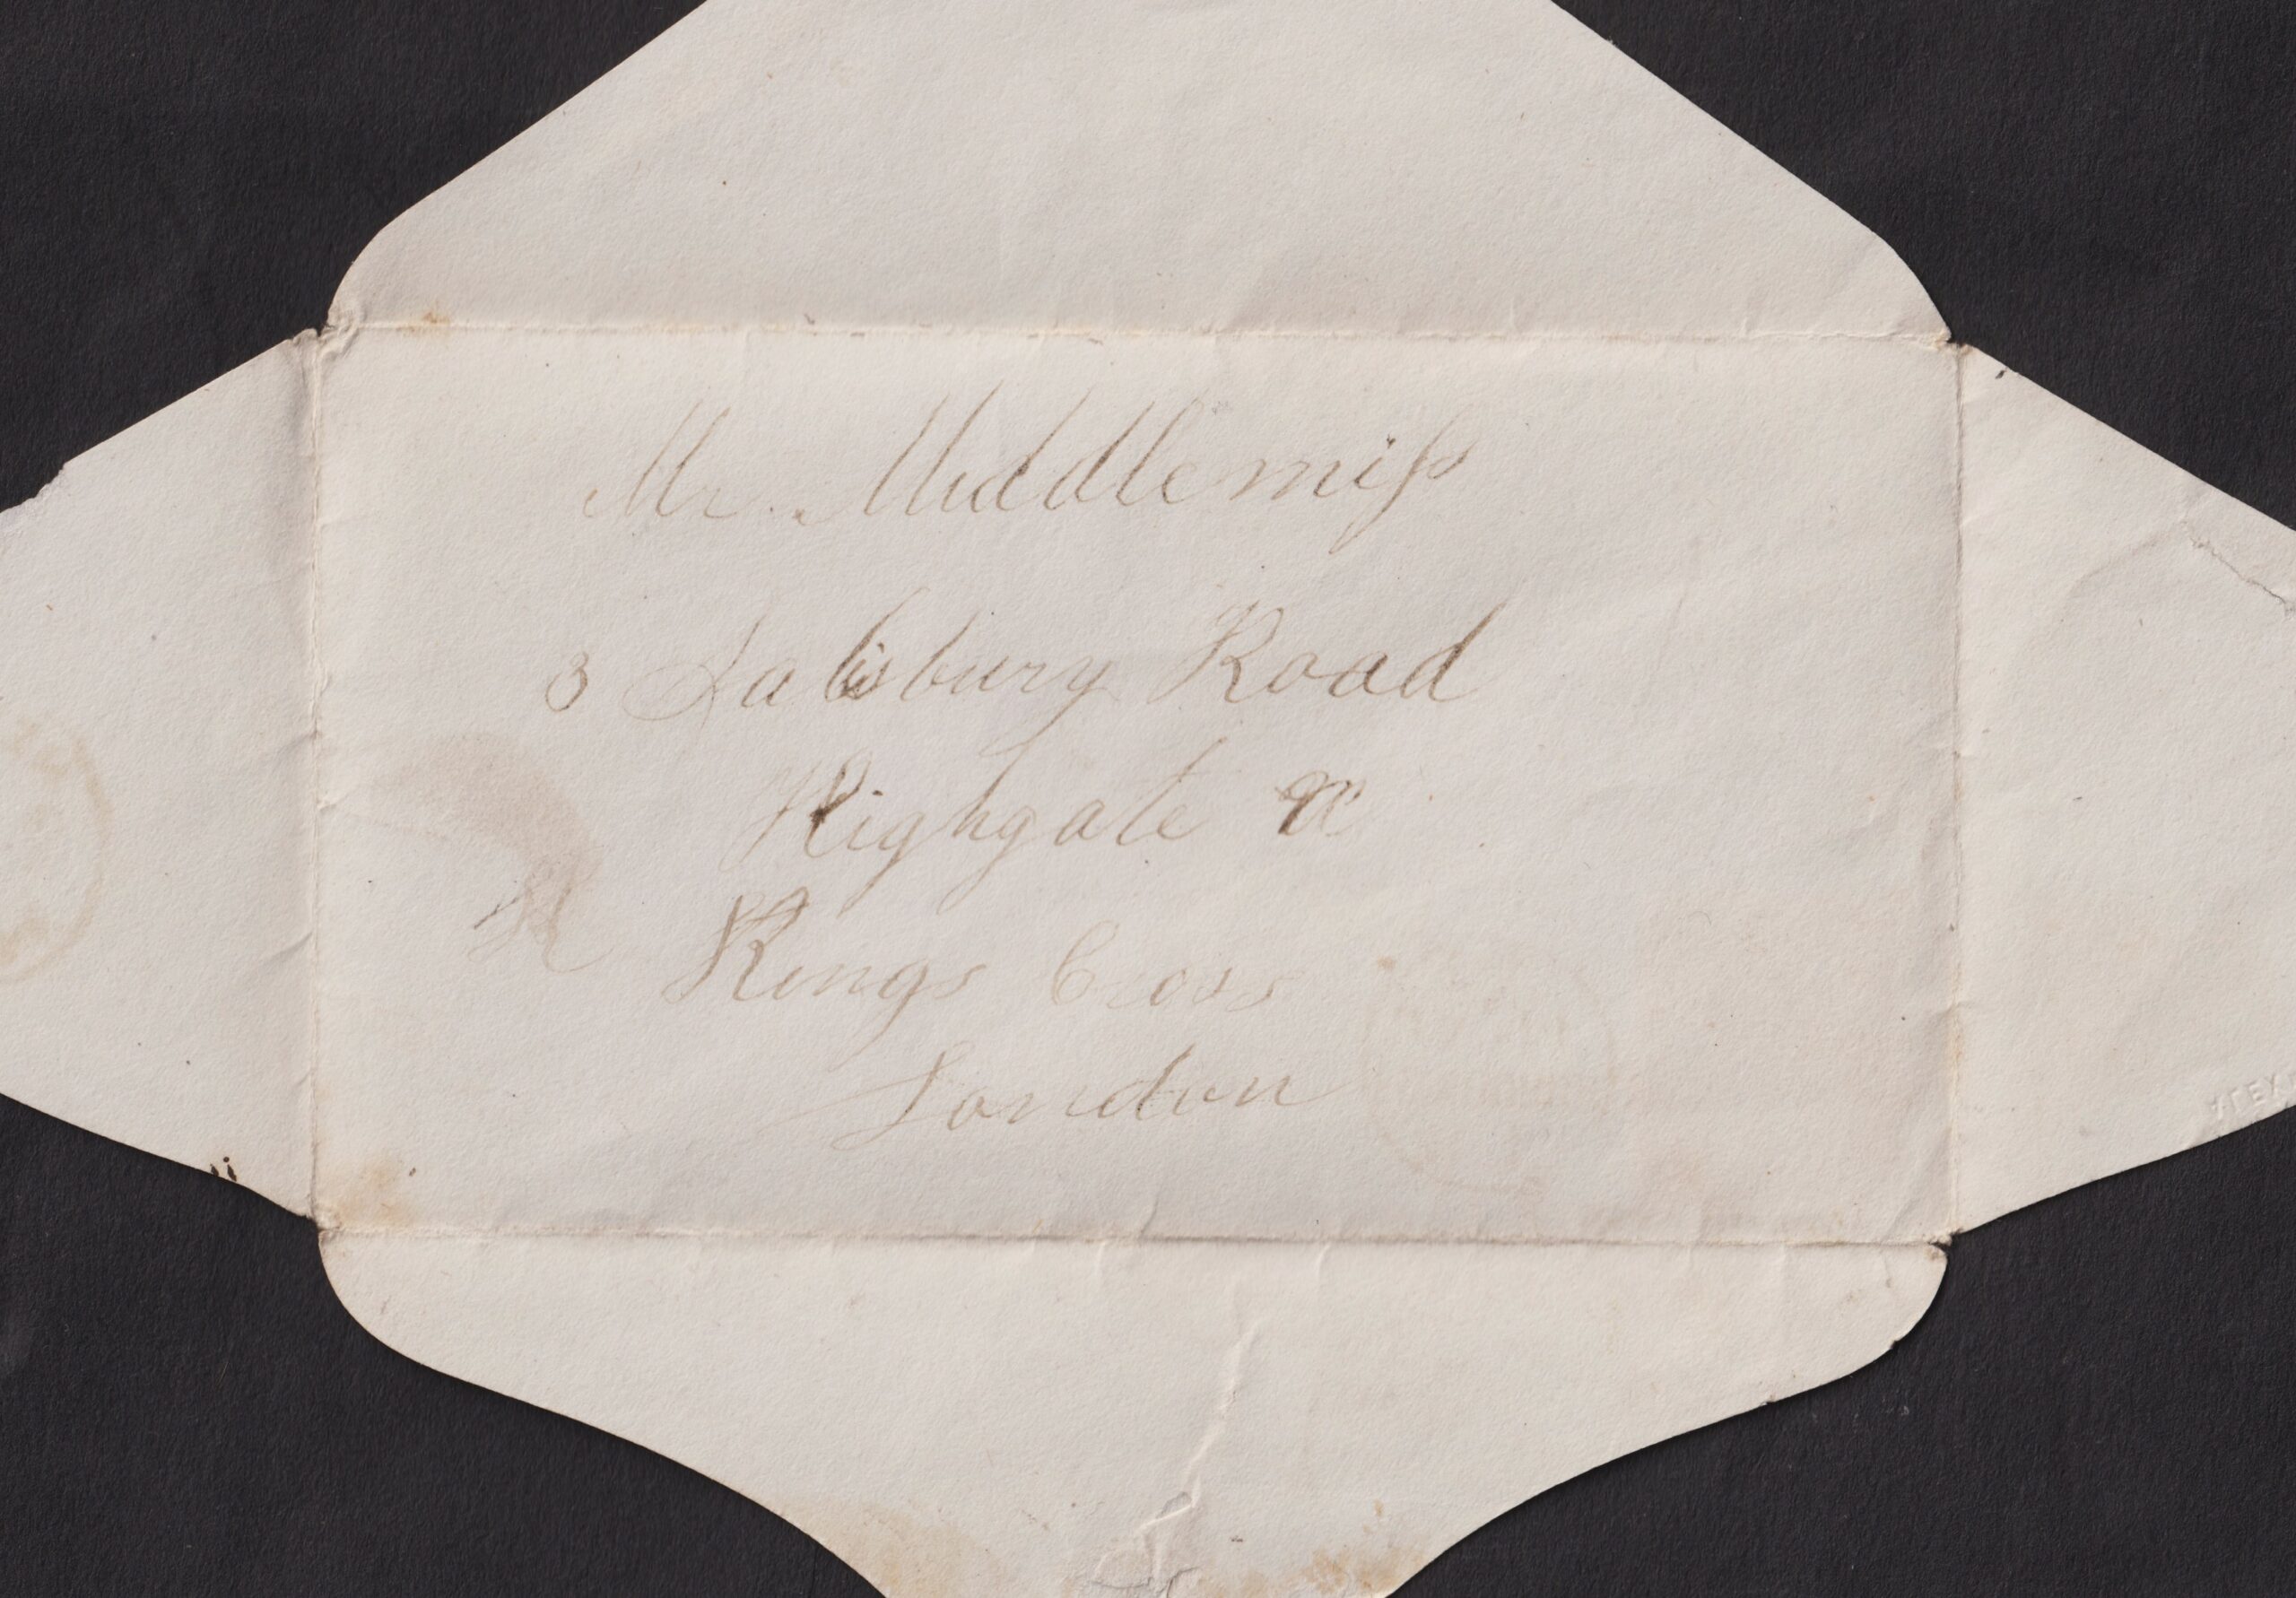 Mr. Middlemiss
3 Salisbury Road
Highgate
Kings Cross
London
ALEX